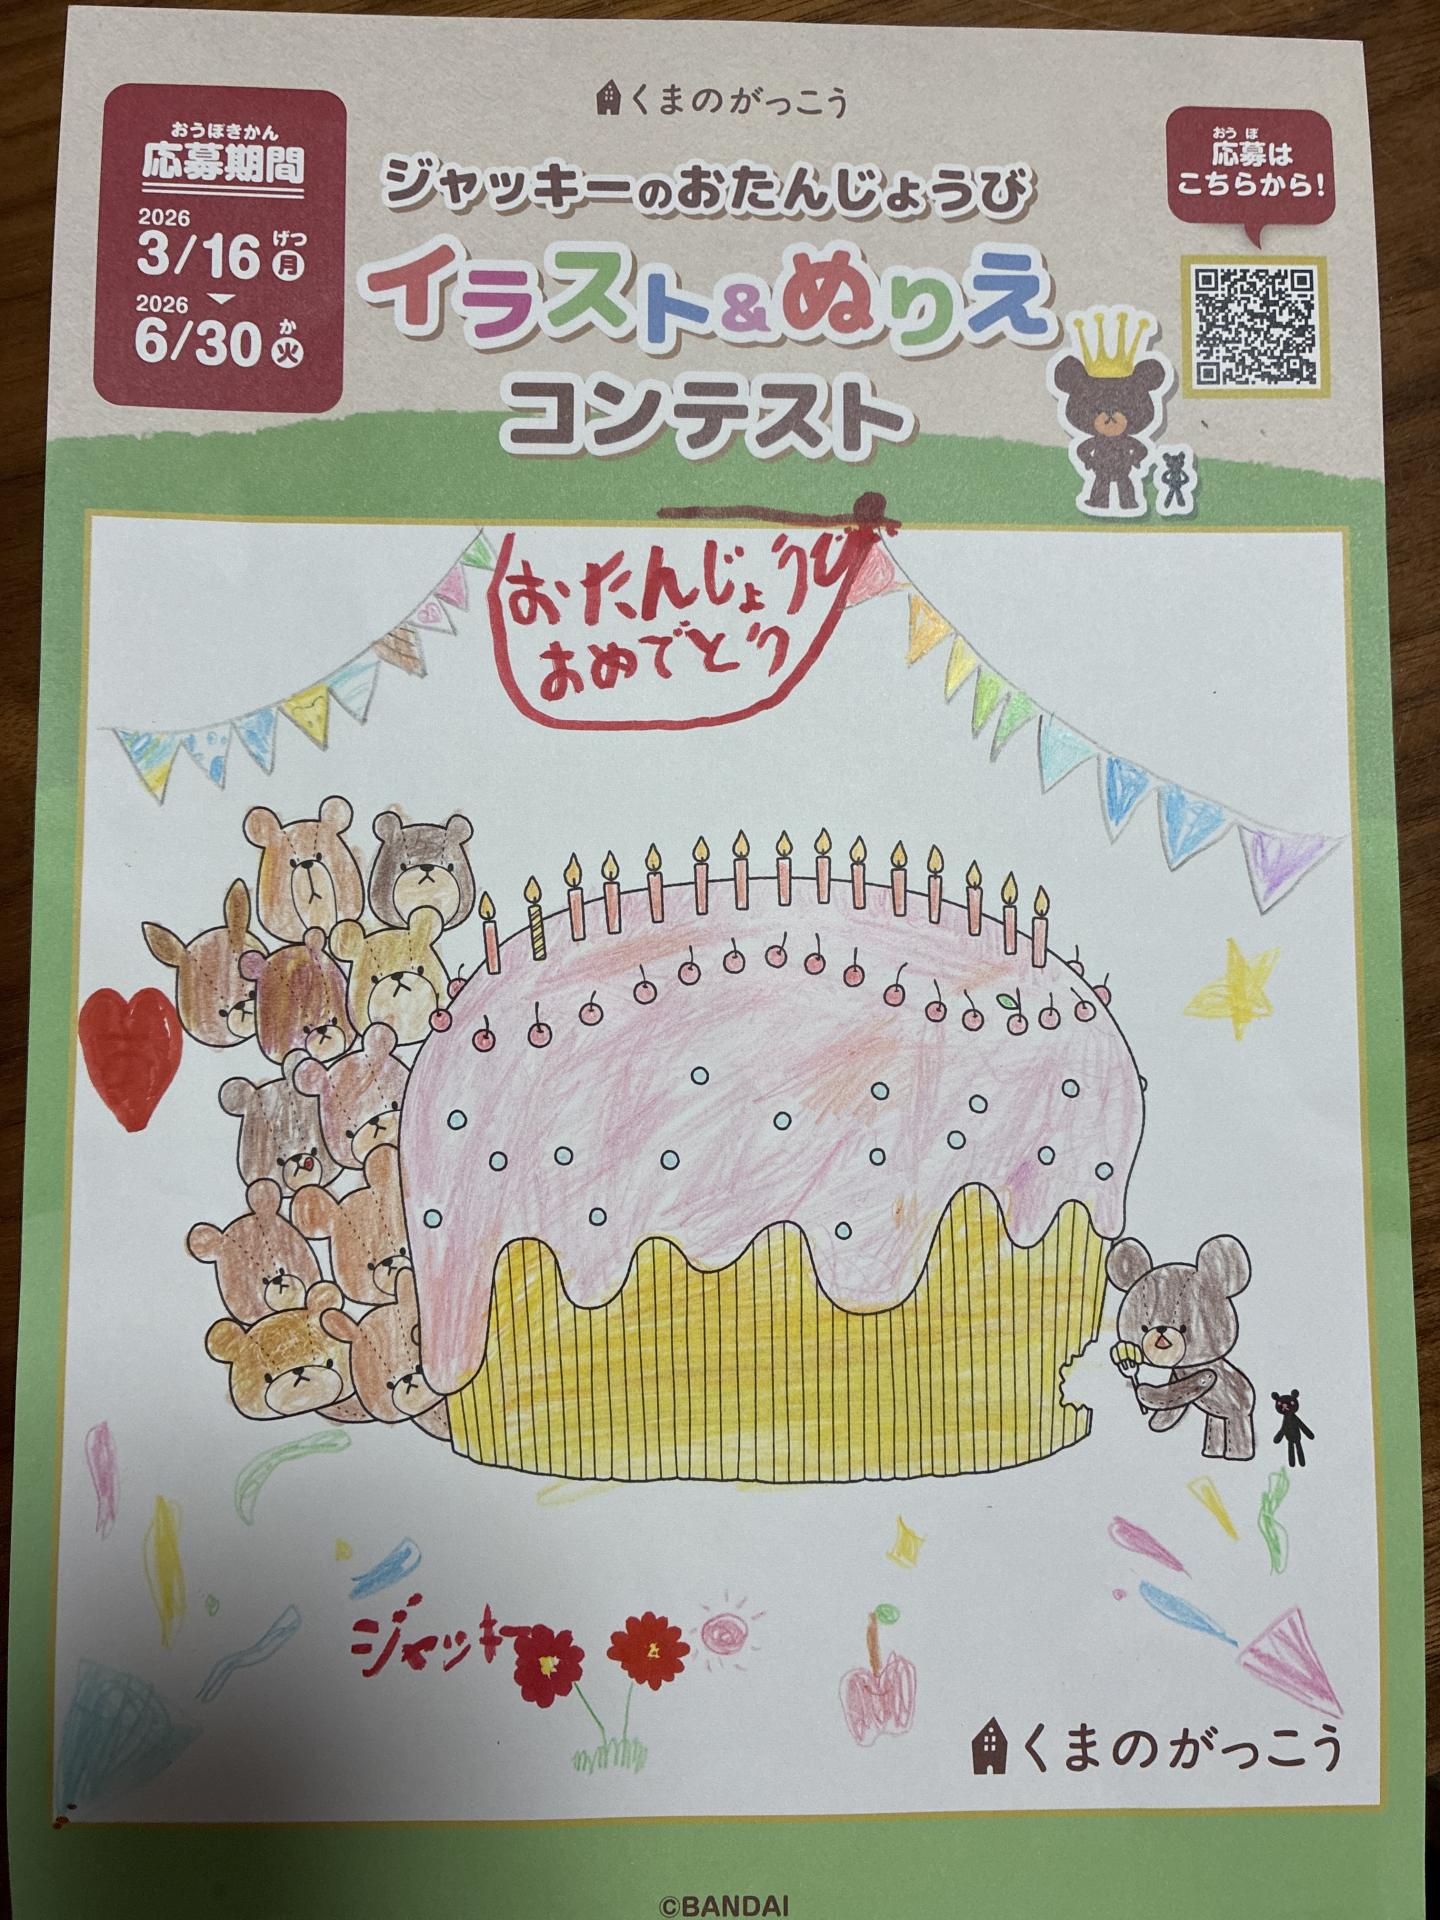 くまのがっこう
おうぼきかん
応募期間
2026
3/16 げつ
月
2026
6/30 か
火
ジャッキーのおたんじょうび
イラスト&ぬりえ
コンテスト
おうぼ
応募は
こちらから!
おたんじょうび
おめでとう
ジャッキー
くまのがっこう
©BANDAI